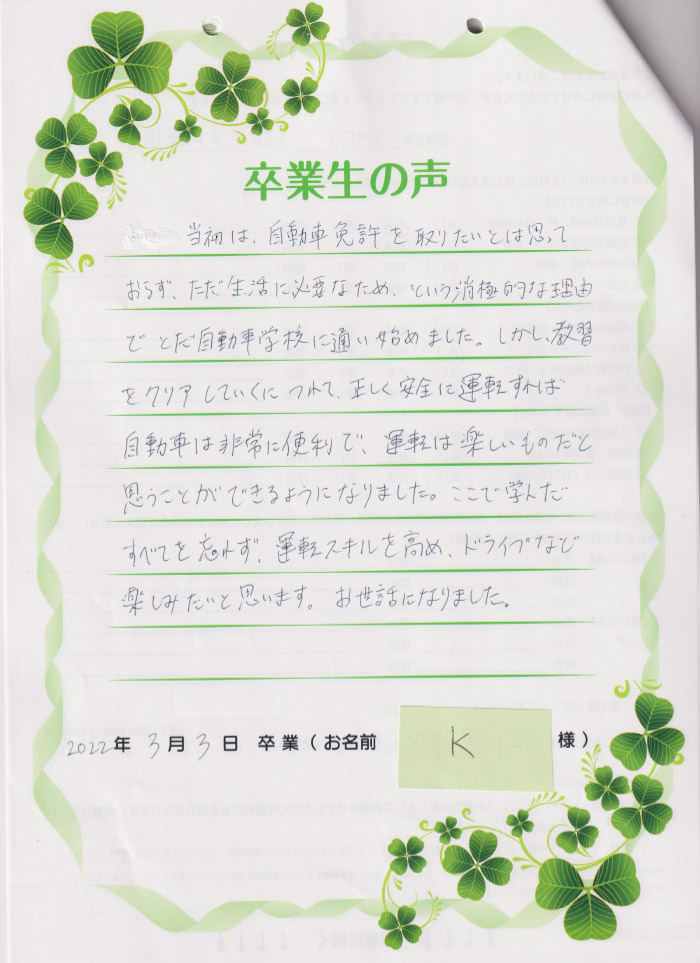 卒業生の声
当初は、自動車免許を取りたいとは思って
おらず、ただ生活に必要なため、という消極的な理由
でとだ自動車学校に通い始めました。しかし、教習
をクリアしていくにつれて、正しく安全に運転すれば
自動車は非常に便利で、運転は楽しいものだと
思うことができるようになりました。ここで学んだ
すべてを忘れず、運転スキルを高め、ドライブなど
楽しみたいと思います。お世話になりました。
2022年 3月 3日 卒業(お名前 K 様)